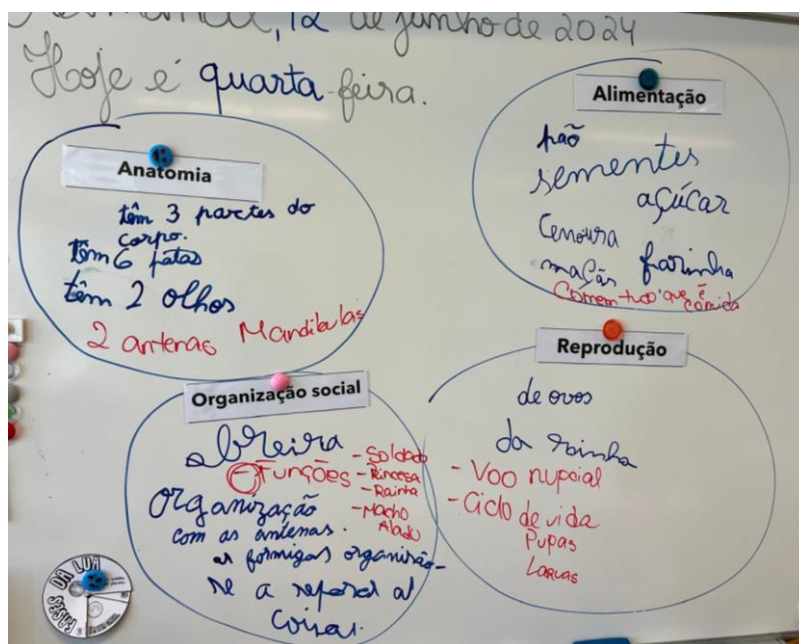 , 12 de junho de 2024
Hoje é quarta-feira.
Anatomia
têm 3 partes do
corpo.
têm 6 patas
têm 2 olhos
2 antenas Mandibulas
Alimentação
pão
sementes
açúcar
Cenoura
maçãs farinha
Comem tudo que é comida
Organização social
obreira
- Funções
- Soldado
- Princesa
- Rainha
- Macho
Alado
Organização
com as antenas.
as formigas organisão-
se a
coisas.
Reprodução
de ovos
da rainha
- Voo nupcial
- Ciclo de vida
Pupas
Larvas
FASES
DA LUA